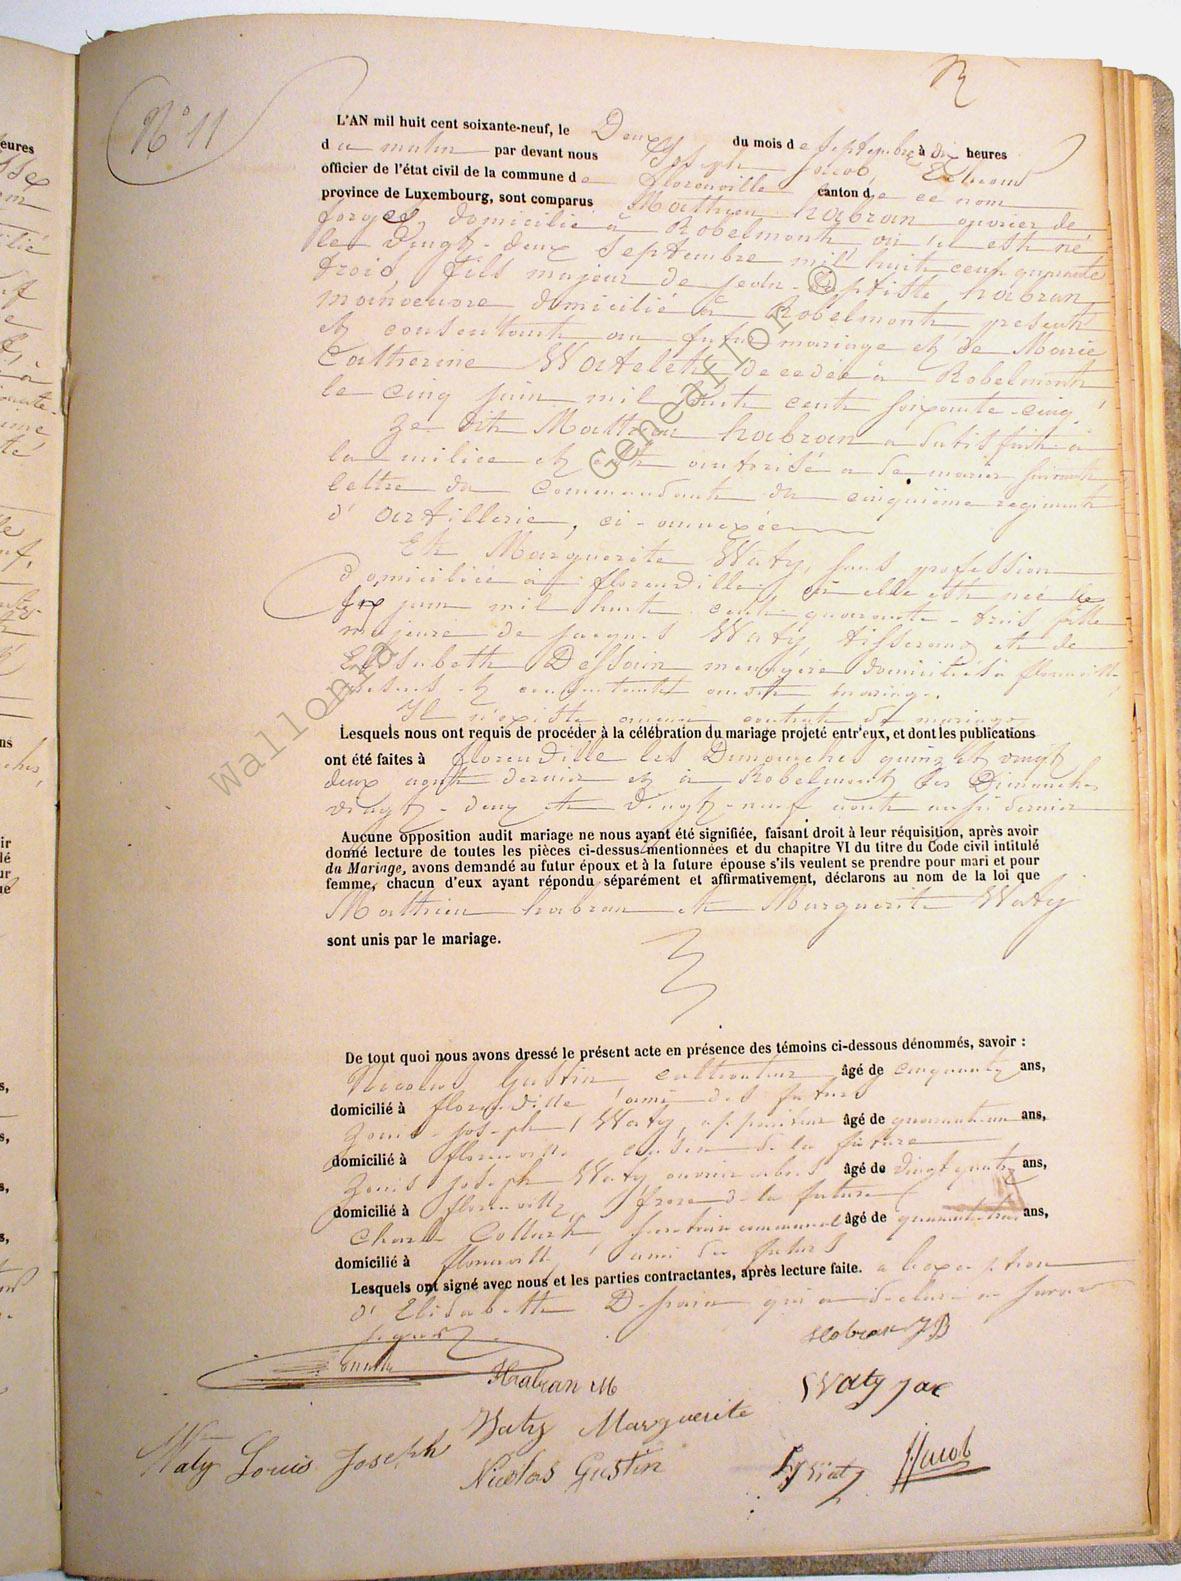 N° 11
L'AN mil huit cent soixante-neuf, le Deux du mois de Septembre à dix heures
du matin par devant nous Joseph Jacob, Echevin
officier de l'état civil de la commune de florenville canton de ce nom
province de Luxembourg, sont comparus Mathieu habran ouvrier de
forges, domicilié à Robelmont où il est né
le vingt-deux Septembre mil huit cent quarante
trois, fils majeur de jean-Baptiste habran,
manoeuvre domicilié à Robelmont, présent
et consentant au futur mariage et de Marie
Catherine Watelet décédée à Robelmont
le cinq juin mil huit cent soixante-cinq
Le dit Mathieu habran a satisfait à
la milice et est autorisé a se marier suivant
lettre du Commandant du cinquième régiment
d'artillerie, ci-annexée
Et Marguerite Waty, sans profession
domiciliée à florenville où elle est née le
six juin mil huit cent quarante-trois fille
majeure de jacques Waty, tisserand et de
Elisabeth Dessain menagère domiciliés à florenville
et consentant audit mariage.
Il n'existe aucun contrat de mariage
Lesquels nous ont requis de procéder à la célébration du mariage projeté entr'eux, et dont les publications
ont été faites à florenville les Dimanches quinze et vingt
deux août dernier et à Robelmont les Dimanches
vingt-deux et vingt-neuf août aussi dernier
Aucune opposition audit mariage ne nous ayant été signifiée, faisant droit à leur réquisition, après avoir
donné lecture de toutes les pièces ci-dessus mentionnées et du chapitre VI du titre du Code civil intitulé
du Mariage, avons demandé au futur époux et à la future épouse s'ils veulent se prendre pour mari et pour
femme, chacun d'eux ayant répondu séparément et affirmativement, déclarons au nom de la loi que
Mathieu habran et Marguerite Waty
sont unis par le mariage.
De tout quoi nous avons dressé le présent acte en présence des témoins ci-dessous dénommés, savoir :
Nicolas Gustin, cultivateur âgé de cinquante ans,
domicilié à florenville ami des futurs
Louis-joseph Waty, appariteur âgé de quarante un ans,
domicilié à florenville cousin de la future
Louis joseph Waty ouvrier âgé de vingt quatre ans,
domicilié à florenville, frère de la future
Charles Collart, secrétaire communal âgé de quarante trois ans,
domicilié à florenville ami des futurs
Lesquels ont signé avec nous et les parties contractantes, après lecture faite. a l'exception
d'Elisabeth Dessain qui a déclaré ne savoir
signer
Habran JB
Habran M
Waty Jac
Waty Marguerite
Waty Louis Joseph
Nicolas Gustin
LJ Waty
J Jacob
wallonia Geneafror ©